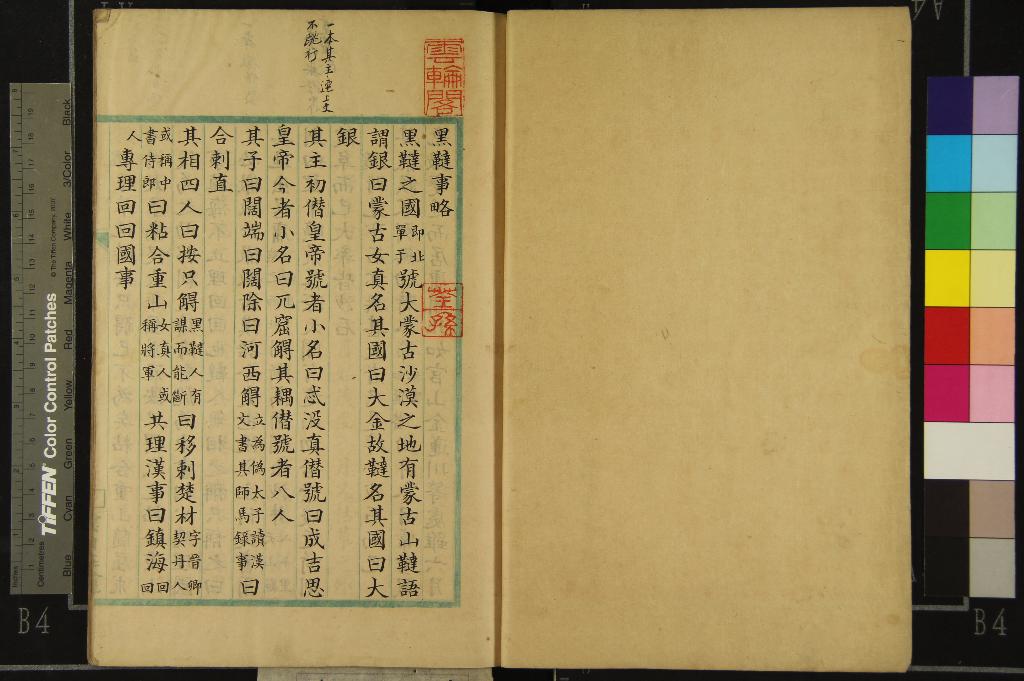 一本其主連上文
不跳行
雲輪閣
荃孫
黑韃事略
黑韃之國即北單于號大蒙古沙漠之地有蒙古山韃語
謂銀曰蒙古女真名其國曰大金故韃名其國曰大
銀
其主初僣皇帝號者小名曰忒没真僣號曰成吉思
皇帝今者小名曰兀窟䚟其耦僣號者八人
其子曰闊端曰闊除曰河西䚟立為僞太子讀漢文書其師馬録事曰
合剌直
其相四人曰按只䚟黑韃人有謀而能斷曰移剌楚材字晉卿契丹人
或稱中書侍郎曰粘合重山女真人或稱將軍共理漢事曰鎮海回回
人專理回回國事
Inches
Centimetres
TIFFEN Color Control Patches
© The Tiffen Company, 2007
Blue
Cyan
Green
Yellow
Red
Magenta
White
3/Color
Black
B4
B4
A4